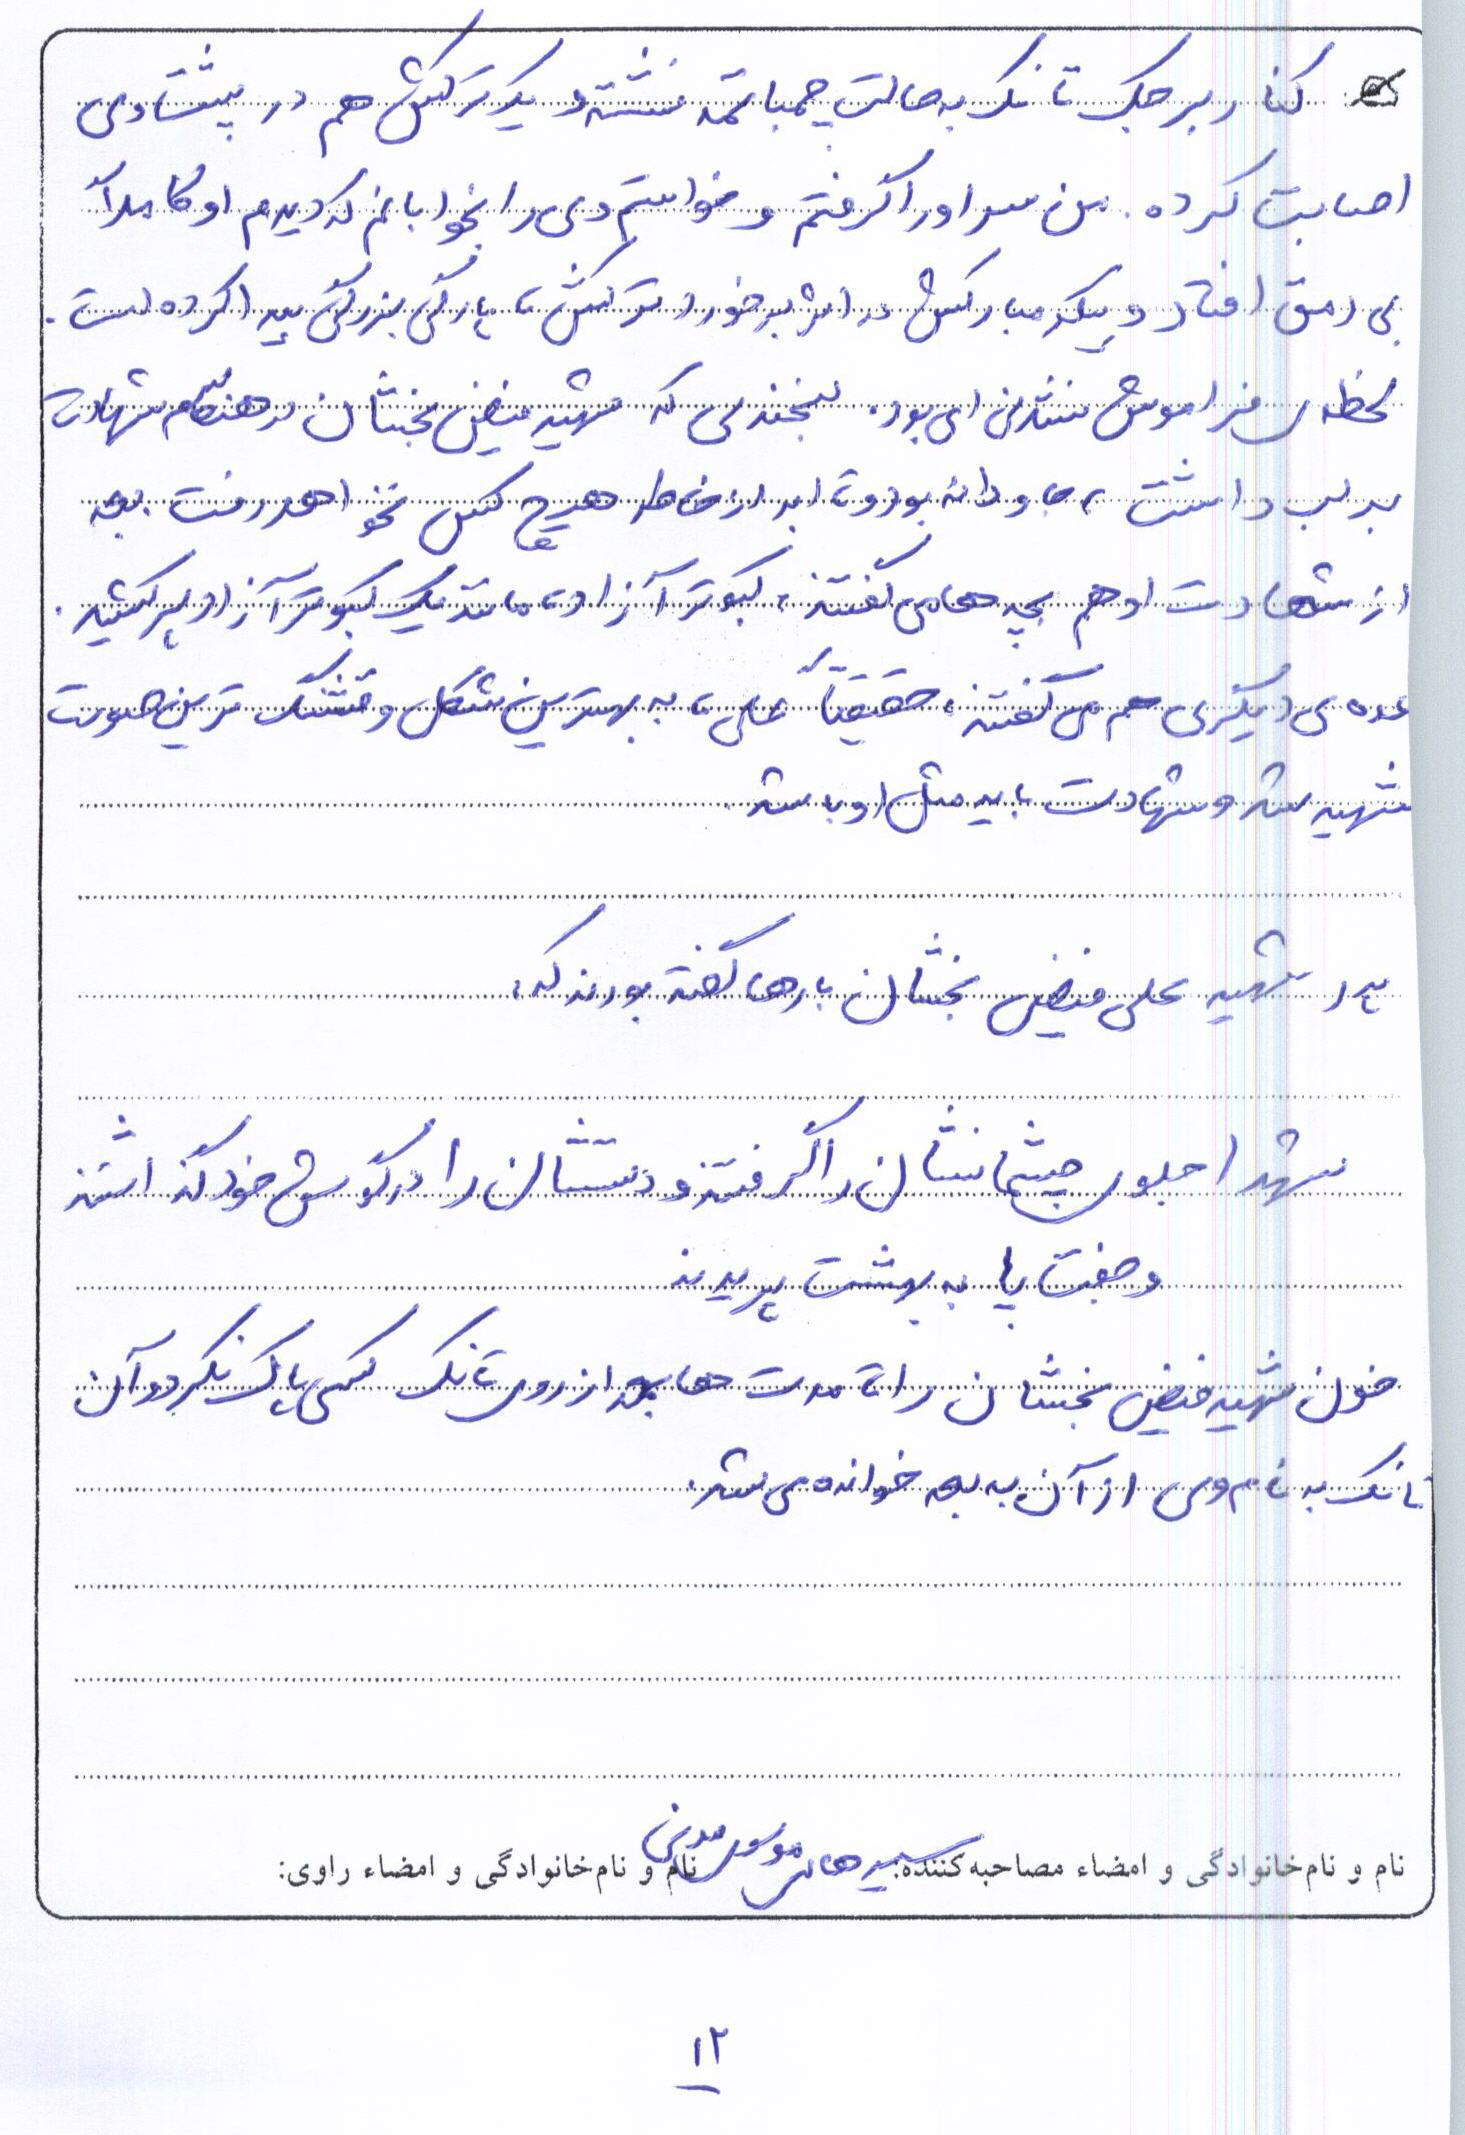 کنار برجک تانک به حالت چمباتمه نشسته و یک ترکش هم در پیشتا وی
اصابت کرده. من سر او را گرفتم و خواستم وی را بخوابانم که دیدم او کاملاً
بی رمق افتاد و پیکر مبارکش در اثر برخورد ترکش، پارگی بزرگی پیدا کرده است.
لحظه ی فراموش نشدنی ای بود. لبخندی که شهید فیض بخشان در هنگام شهادت
بر لب داشت، جاودانه بود و تا ابد از خاطر هیچ کس نخواهد رفت. بعد
از شهادت او هم بچه ها می گفتند، کبوتر آزاد، مانند یک کبوتر آزاد پر کشید.
عده ی دیگری هم می گفتند، حقیقتاً علی، به بهترین شکل و قشنگ ترین صورت
شهید شد و شهادت باید مثل او باشد.
پدر شهید علی فیض بخشان بارها گفته بودند که:
شهدا جلوی چشمانشان را گرفتند و دستشان را در گوش خود گذاشتند
و جفت پا به بهشت پریدند
خون شهید فیض بخشان را تا مدت ها بعد از روی تانک کسی پاک نکرد و آن
تانک به نام وی از آن به بعد خوانده می شد.
نام و نام خانوادگی و امضاء مصاحبه کننده: سید هادی موسوی مدنی نام و نام خانوادگی و امضاء راوی:
۱۲